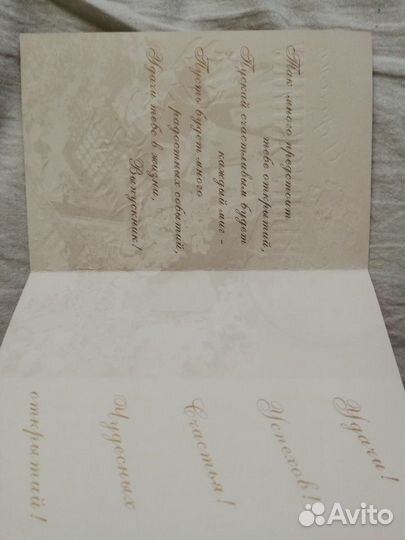 Так много предстоит
тебе открытий,
Пускай счастливым будет
каждый миг -
Пусть будет много
радостных событий,
Удачи тебе в жизни,
Выпускник!
Удачи!
Успехов!
Счастья!
Чудесных
открытий!
Avito